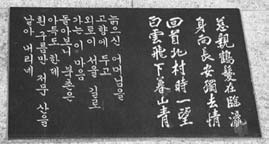 慈親鶴髮在臨瀛
身向長安獨去情
回首北村時一望
白雲飛下暮山青
늙으신 어머님을
고향에 두고
외로이 서울 길로
가는 이 마음
돌아보니 북촌은
아득도 한데
흰 구름만 저문 산을
날아 내리네